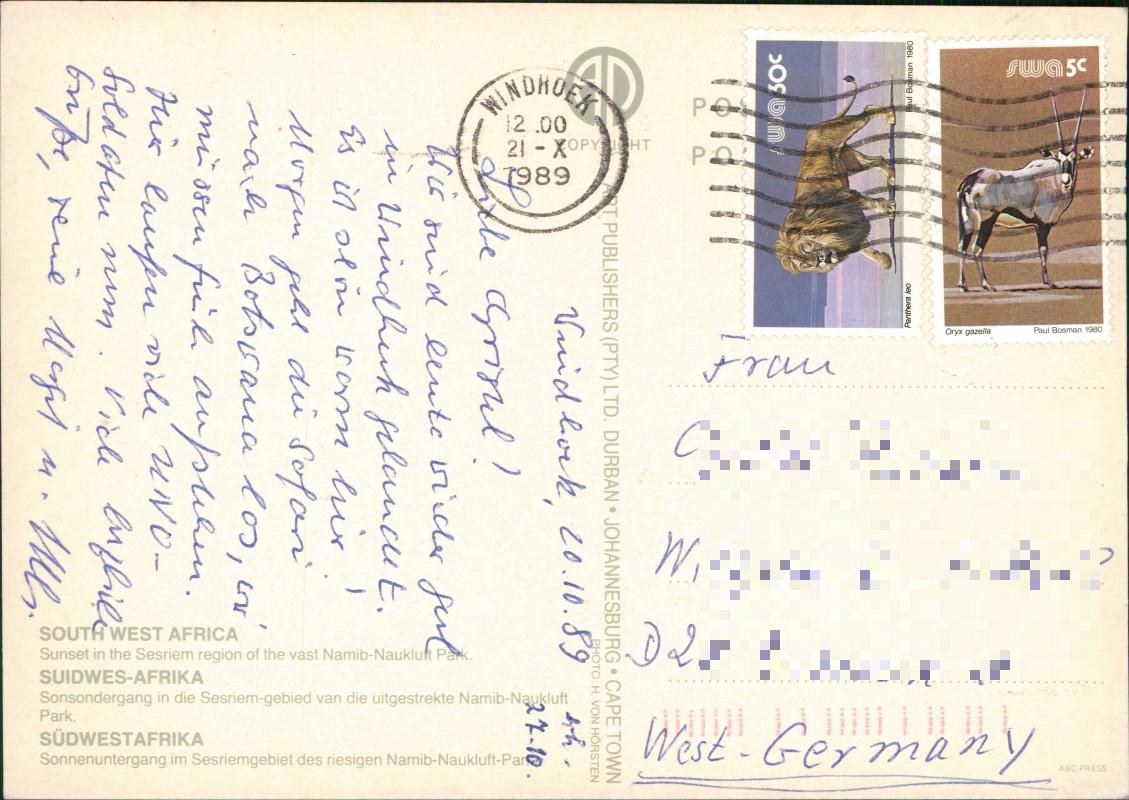 Windhoek, 20.10.89
Liebe Gretel!
Wir sind heute wieder gut
in Windhuk gelandet.
Es ist schön warm hier!
Morgen geht die Safari
nach Botswana los, wir
müssen früh aufstehen.
Hier laufen viele UNO-
Soldaten rum. Viele herzliche
Grüße, Deine u.
27.10.
SOUTH WEST AFRICA
Sunset in the Sesriem region of the vast Namib-Naukluft Park.
SUIDWES-AFRIKA
Sonsondergang in die Sesriem-gebied van die uitgestrekte Namib-Naukluft
Park.
SÜDWESTAFRIKA
Sonnenuntergang im Sesriemgebiet des riesigen Namib-Naukluft-Park
COPYRIGHT
ART PUBLISHERS (PTY) LTD. DURBAN • JOHANNESBURG • CAPE TOWN
PHOTO: H. VON HÖRSTEN
WINDHOEK
12.00
21-X
1989
swa 30c
Paul Bosman 1980
Panthera leo
swa 5c
Oryx gazella Paul Bosman 1980
Frau
C
W
D2
West-Germany
ABC PRESS